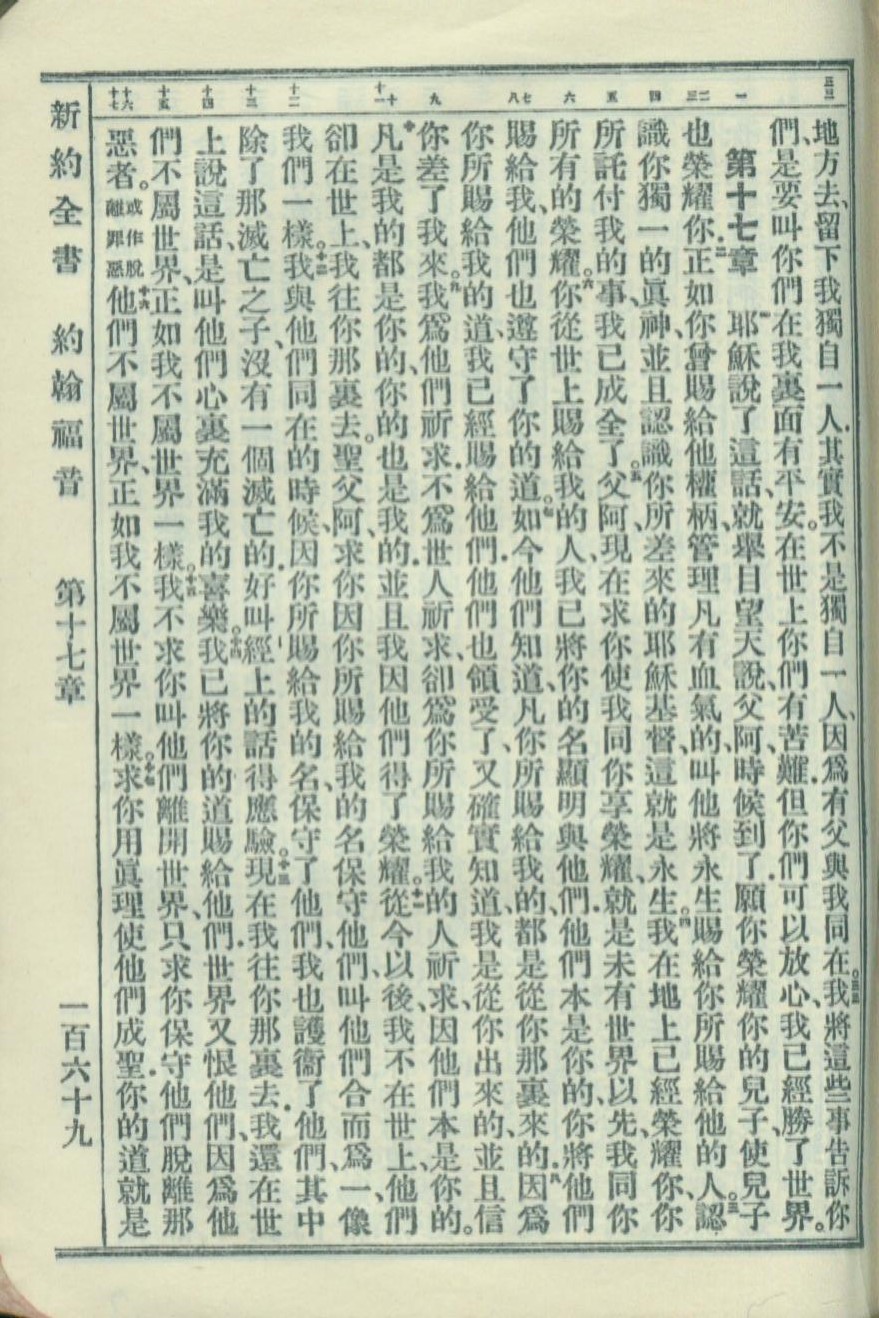 三十三
地方去、留下我獨自一人．其實我不是獨自一人、因爲有父與我同在。三十三我將這些事告訴你
們、是要叫你們在我裏面有平安。在世上你們有苦難．但你們可以放心、我已經勝了世界。
一
第十七章　一耶穌說了這話、就舉目望天說、父阿、時候到了．願你榮耀你的兒子、使兒子
二 三
也榮耀你．二正如你曾賜給他權柄、管理凡有血氣的、叫他將永生賜給你所賜給他的人。三認
四
識你獨一的眞神、並且認識你所差來的耶穌基督、這就是永生。四我在地上已經榮耀你、你
五
所託付我的事、我已成全了。五父阿、現在求你使我同你享榮耀、就是未有世界以先、我同你
六
所有的榮耀。六你從世上賜給我的人、我已將你的名顯明與他們．他們本是你的、你將他們
七 八
賜給我、他們也遵守了你的道。七如今他們知道、凡你所賜給我的、都是從你那裏來的．八因爲
你所賜給我的道、我已經賜給他們．他們也領受了、又確實知道、我是從你出來的、並且信
九
你差了我來。九我爲他們祈求．不爲世人祈求、卻爲你所賜給我的人祈求、因他們本是你的。
十 十一
十凡是我的都是你的、你的也是我的．並且我因他們得了榮耀。十一從今以後、我不在世上、他們
卻在世上、我往你那裏去。聖父阿、求你因你所賜給我的名保守他們、叫他們合而爲一、像
十二
我們一樣。十二我與他們同在的時候、因你所賜給我的名、保守了他們、我也護衞了他們、其中
十三
除了那滅亡之子、沒有一個滅亡的．好叫經上的話得應驗。十三現在我往你那裏去．我還在世
十四
上說這話、是叫他們心裏充滿我的喜樂。十四我已將你的道賜給他們．世界又恨他們、因爲他
十五
們不屬世界、正如我不屬世界一樣。十五我不求你叫他們離開世界、只求你保守他們脫離那
十六 十七
惡者。或作脫離罪惡十六他們不屬世界、正如我不屬世界一樣。十七求你用眞理使他們成聖．你的道就是
新約全書　約翰福音　第十七章　一百六十九